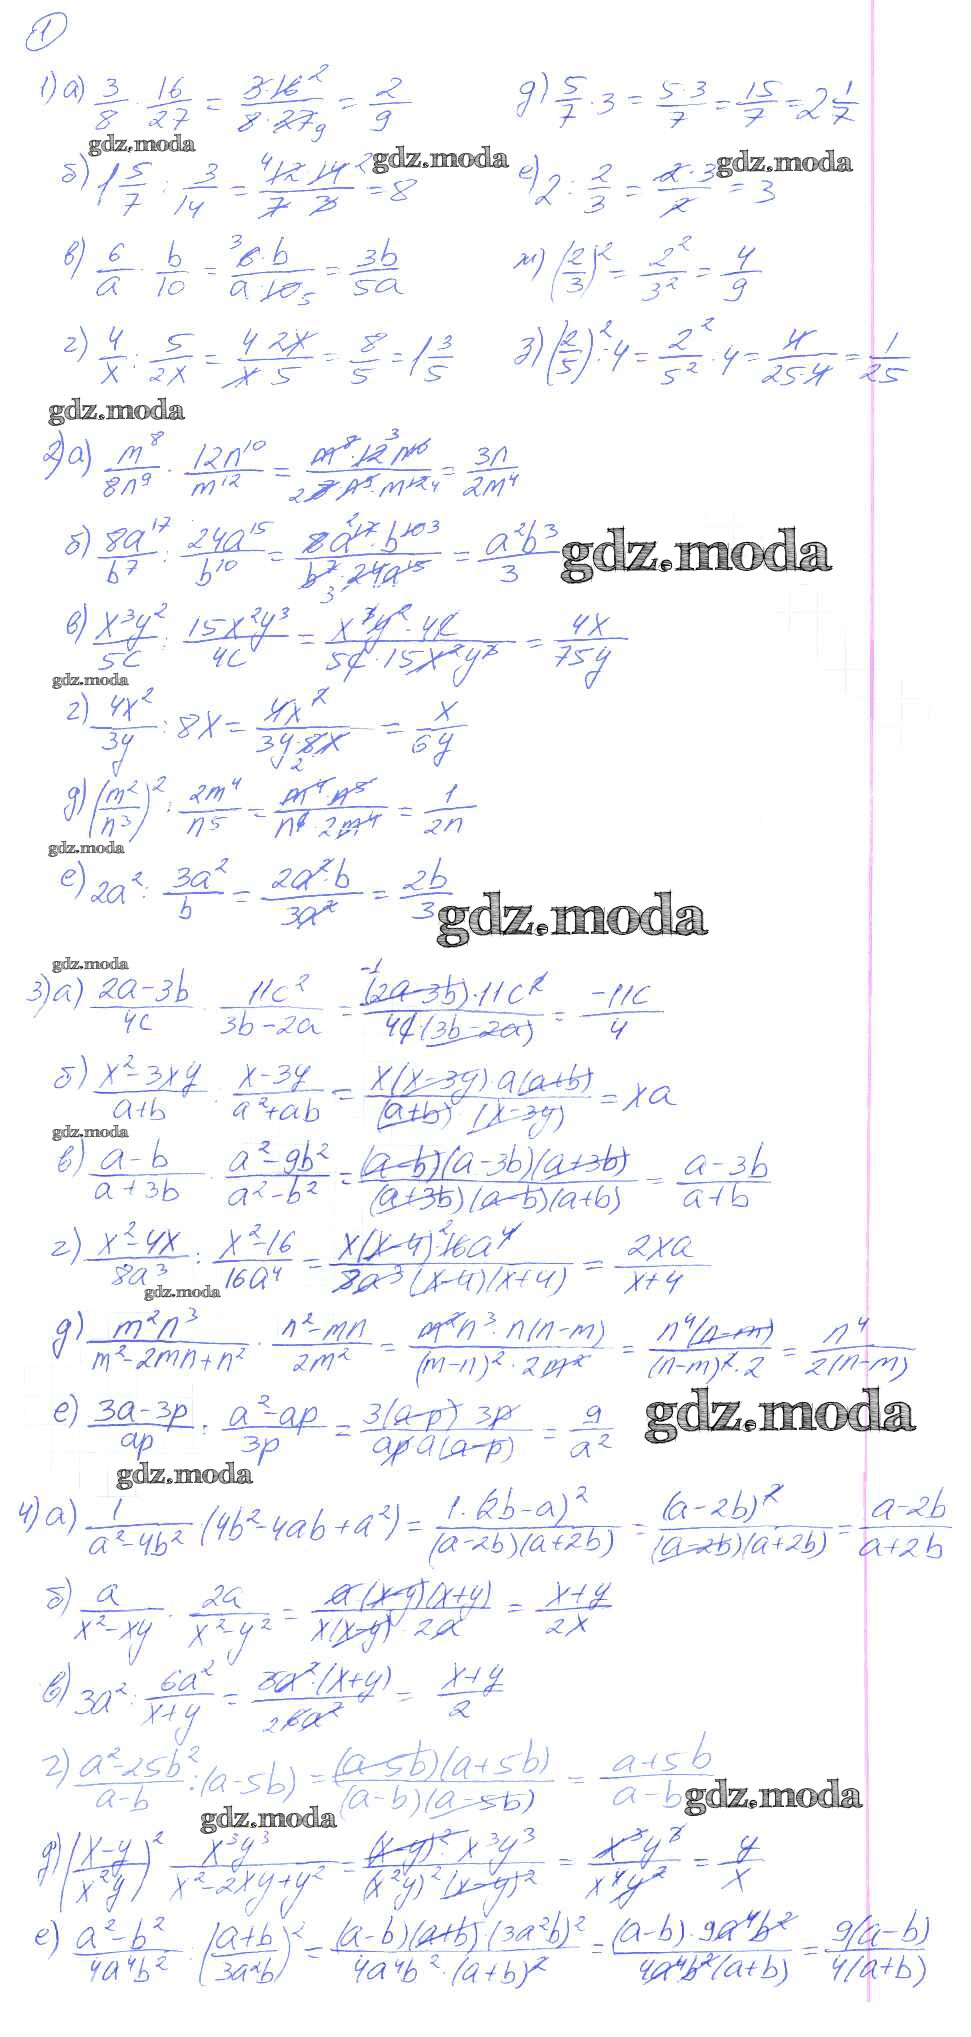 1
1) а) 3/8 · 16/27 = 3·16²/8·27₉ = 2/9 д) 5/7 · 3 = 5·3/7 = 15/7 = 2 1/7
gdz.moda gdz.moda gdz.moda
б) 1 5/7 : 3/14 = ⁴12 14²/7 3 = 8 е) 2 : 2/3 = 2·3/2 = 3
в) 6/a · b/10 = ³6·b/a·10₅ = 3b/5a ж) (2/3)² = 2²/3² = 4/9
г) 4/x : 5/2x = 4 2x/x 5 = 8/5 = 1 3/5 з) (2/5)² : 4 = 2²/5² · 4 = 4/25·4 = 1/25
gdz.moda
2) а) m⁸/8n⁹ · 12n¹⁰/m¹² = m⁸·12³n¹⁰/₂8n⁹·m¹²₄ = 3n/2m⁴
б) 8a¹⁷/b⁷ : 24a¹⁵/b¹⁰ = 8a¹⁷²·b¹⁰³/b⁷·₃24a¹⁵ = a²b³/3
gdz.moda
в) x³y²/5c : 15x²y³/4c = x³y²·4c/5c·15x²y³ = 4x/75y
gdz.moda
г) 4x²/3y : 8x = 4x²/3y·8x₂ = x/6y
д) (m²/n³)² : 2m⁴/n⁵ = m⁴·n⁵/n⁶·2m⁴ = 1/2n
gdz.moda
е) 2a² : 3a²/b = 2a²·b/3a² = 2b/3
gdz.moda
gdz.moda
3) а) 2a-3b/4c · 11c²/3b-2a = ⁻¹(2a-3b)·11c²/4c·(3b-2a) = -11c/4
б) x²-3xy/a+b · x-3y/a²+ab = x(x-3y)·a(a+b)/(a+b) (x-3y) = xa
gdz.moda
в) a-b/a+3b · a²-9b²/a²-b² = (a-b)(a-3b)(a+3b)/(a+3b)(a-b)(a+b) = a-3b/a+b
г) x²-4x/8a³ : x²-16/16a⁴ = x(x-4)·²16a⁴/8a³(x-4)(x+4) = 2xa/x+4
gdz.moda
д) m²n³/m²-2mn+n² · n²-mn/2m² = m²n³·n(n-m)/(m-n)²·2m² = n⁴(n-m)/(n-m)²·2 = n⁴/2(n-m)
е) 3a-3p/ap : a²-ap/3p = 3(a-p) 3p/ap a(a-p) = 9/a²
gdz.moda
gdz.moda
4) а) 1/a²-4b² (4b²-4ab+a²) = 1·(2b-a)²/(a-2b)(a+2b) = (a-2b)²/(a-2b)(a+2b) = a-2b/a+2b
б) a/x²-xy · 2a/x²-y² = a(x-y)(x+y)/x(x-y) 2a = x+y/2x
в) 3a² : 6a²/x+y = 3a²·(x+y)/₂6a² = x+y/2
г) a²-25b²/a-b : (a-5b) = (a-5b)(a+5b)/(a-b)(a-5b) = a+5b/a-b
gdz.moda
gdz.moda
д) (x-y/x²y)² x³y³/x²-2xy+y² = (x-y)² x³y³/(x²y)²(x-y)² = x³y³/x⁴y² = y/x
е) a²-b²/4a⁴b² : (a+b/3a²b)² = (a-b)(a+b)·(3a²b)²/4a⁴b²·(a+b)² = (a-b)·9a⁴b²/4a⁴b²(a+b) = 9(a-b)/4(a+b)